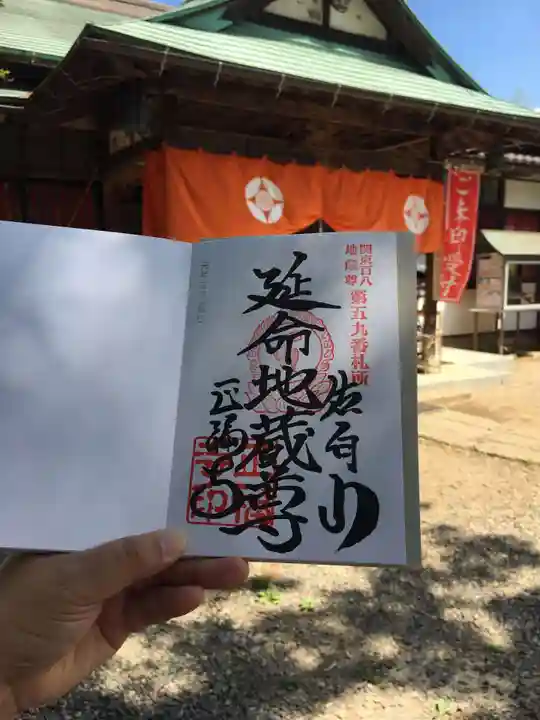 関東百八
地蔵尊
第五九番札所
佐白山
延命地蔵尊
正福寺